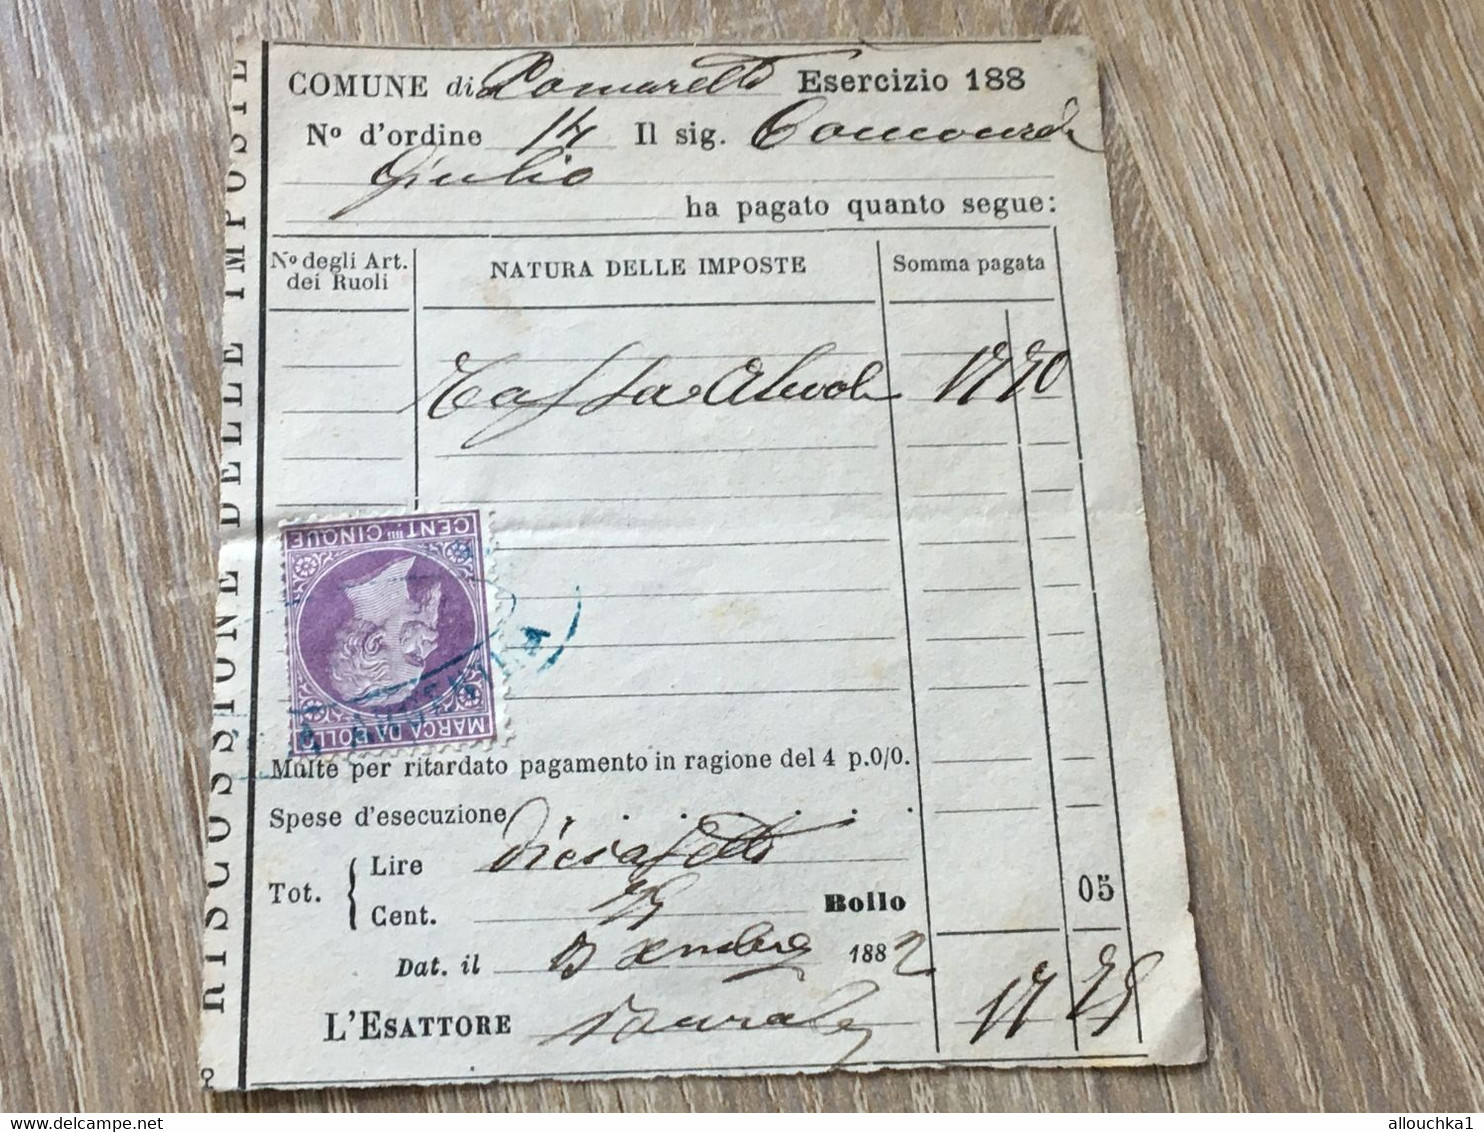 RISCOSSIONE DELLE IMPOSTE
COMUNE di Pomaretto Esercizio 188
No d'ordine 17 Il sig.
Giulio
ha pagato quanto segue:
No degli Art. dei Ruoli NATURA DELLE IMPOSTE Somma pagata
Tassa 17 70
CENT.mi CINQUE
MARCA DA BOLLO
Multe per ritardato pagamento in ragione del 4 p.0/0.
Spese d'esecuzione . . . . . .
Tot. { Lire diciasette
Cent. 75 Bollo 05
Dat. il 1882
L'ESATTORE 17 75
allouchka1